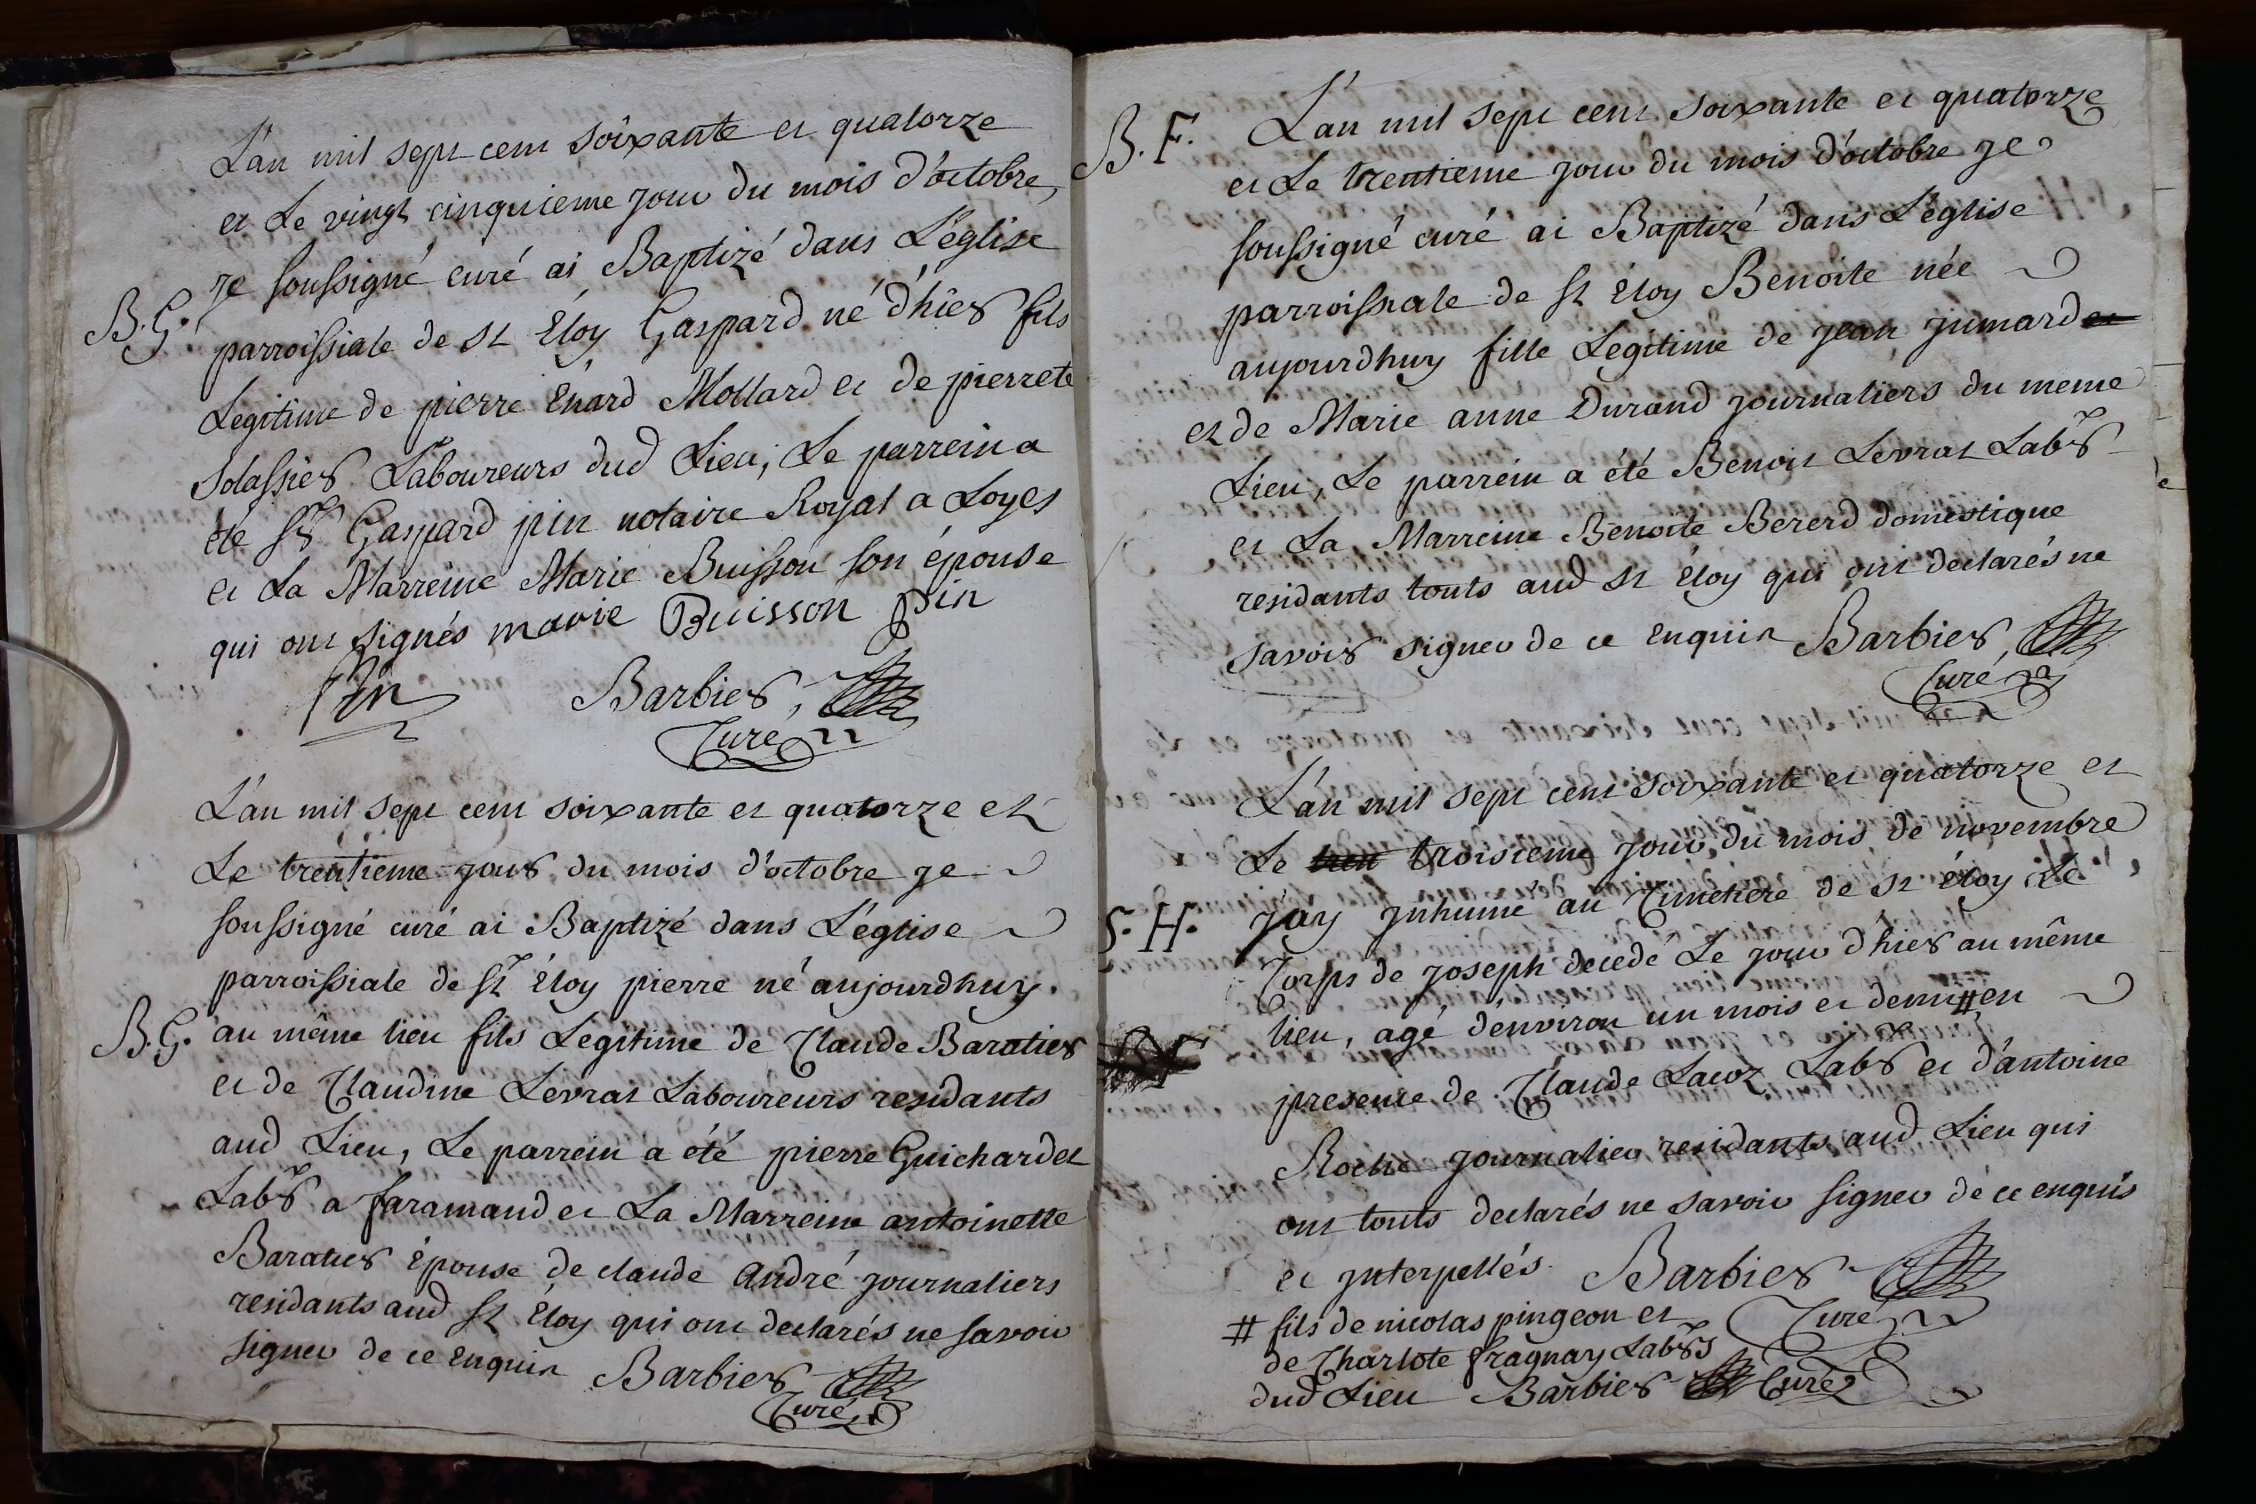 L'an mil sept cent soixante et quatorze
et Le vingt cinquieme jour du mois d'octobre,
je soussigné curé ai Baptizé dans L'église
B. G. parroissiale de St Éloy Gaspard né d'hier fils
Legitime de pierre Enard Mollard et de pierrete
Solassier Laboureurs dud Lieu; Le parrein a
été Sr Gaspard pin notaire Royal a Loyes
et La Marreine Marie Buisson son épouse
qui ont signés marie Buisson pin
Pin Barbier,
Curé
L'an mil sept cent soixante et quatorze et
Le trentieme jour du mois d'octobre je
soussigné curé ai Baptizé dans L'église
parroissiale de St Éloy pierre né aujourdhuy
B. G. au même lieu fils Legitime de Claude Baratier
et de Claudine Levrat Laboureurs residants
aud Lieu, Le parrein a été pierre Guichardet
Labr a faramand et La Marreine antoinette
Baratier Épouse de claude André journaliers
residants aud St Éloy qui ont declarés ne savoir
signer de ce Enquis Barbier
Curé
B. F. L'an mil sept cent soixante et quatorze
et Le trentieme jour du mois d'octobre je
soussigné curé ai Baptizé dans L'église
parroissiale de St Éloy Benoite née
aujourdhuy fille Legitime de jean jumard et
et de Marie anne Durand journaliers du meme
Lieu, Le parrein a été Benoit Levrat Labr
et La Marreine Benoite Bererd domestique
residants touts aud St Éloy qui ont declarés ne
savoir signer de ce Enquis Barbier,
Curé
L'an mil sept cent soixante et quatorze et
Le tren troisieme jour du mois de novembre
S. H. j'ay jnhumé au Cimetiere de St éloy Le
Corps de joseph decedé Le jour d'hier au même
lieu, agé d'environ un mois et demi # en
presence de Claude Lacoz Labr et d'antoine
Roche journalier residants aud Lieu qui
ont touts declarés ne savoir signer de ce enquis
et jnterpellés. Barbier
Curé
# fils de nicolas pingeon et
de Charlote fragnay Labrs
dud Lieu Barbier Curé